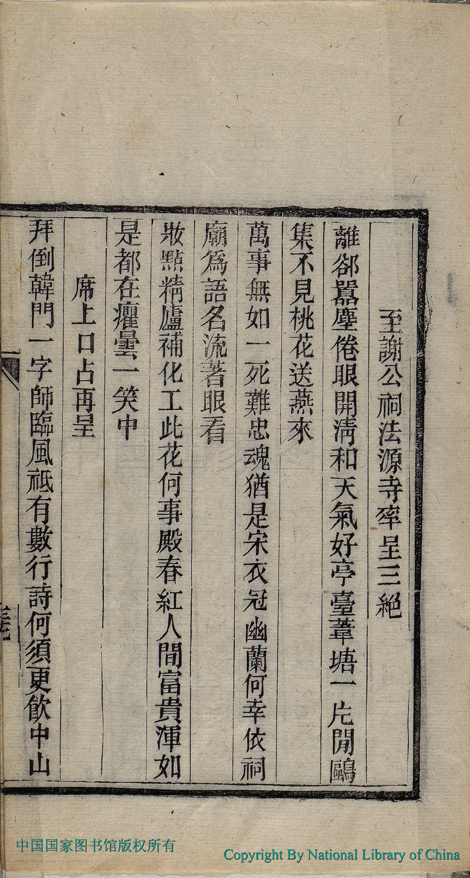 至謝公祠法源寺率呈三絕
離卻囂塵倦眼開淸和天氣好亭臺葦塘一片閒鷗
集不見桃花送燕來
萬事無如一死難忠魂猶是宋衣冠幽蘭何幸依祠
廟爲語名流著眼看
妝點精廬補化工此花何事殿春紅人間富貴渾如
是都在癯曇一笑中
席上口占再呈
拜倒韓門一字師臨風祗有數行詩何須更飮中山
中国国家图书馆版权所有
Copyright By National Library of China